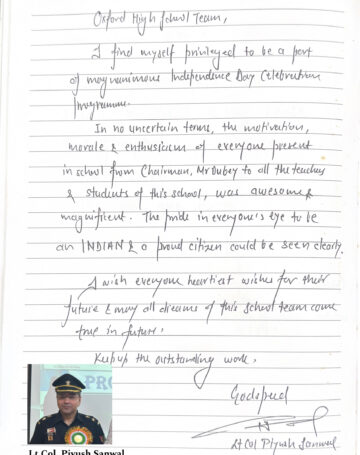 Oxford High School Team,
I find myself privileged to be a part
of magnanimous Independence Day Celebration
programme.
In no uncertain terms, the motivation,
morale & enthusiasm of everyone present
in school from Chairman, Mr Dubey to all the teachers
& students of this school, was awesome &
magnificent. The pride in everyone's eye to be
an INDIAN & a proud citizen could be seen clearly.
I wish everyone heartiest wishes for their
future & may all dreams of this school team come
true in future.
Keep up the outstanding work.
Godspeed
Lt Col Piyush Sanwal
PRO
Lt Col. Piyush Sanwal